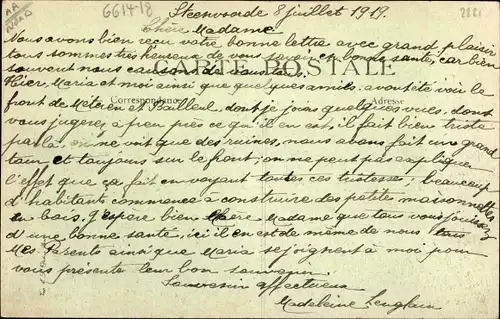 GG14-18
2221
Steenvoorde 8 juillet 1919.
Chère Madame
Nous avons bien reçu votre bonne lettre avec grand plaisir
tous sommes très heureux de vous savoir en bonne santé, car bien
souvent nous causons de vous tous.
CARTE POSTALE
Hier Maria et moi ainsi que quelques amis avont été voir le
Correspondance
Adresse
front de Méteren et Bailleul, dont je joins quelques vues, dont
vous jugerez à peu près ce qu'il en est, il fait bien triste
par là, on ne voit que des ruines, nous avons fait un grand
tour et toujours sur le front; on ne peut pas expliquer
l'effet que ça fait en voyant toutes ces tristesses; beaucoup
d'habitants commence à construire des petites maisonnettes
en bois. J'espère bien chère Madame que tous vous jouissez
d'une bonne santé, ici il en est de même de nous tous
Mes Parents ainsi que Maria se joignent à moi pour
vous présenté leur bon souvenir.
Souvenir affectueux
Madeleine Lenglain